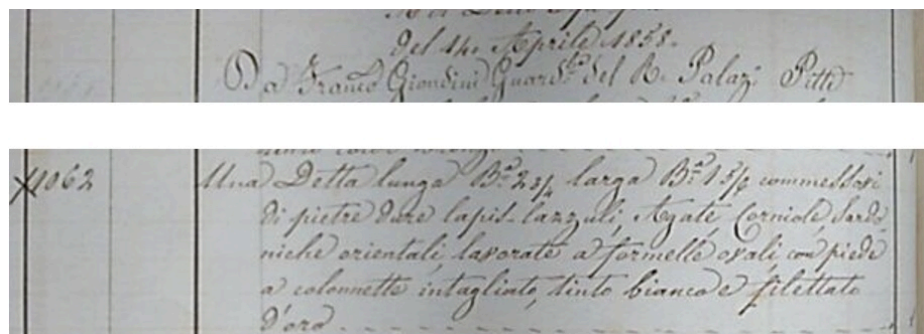 del 14. Aprile 1858.
Da Franco Giondini Guard.ba del R. Palazz. Pitti
1062 Una Detta lunga B.a 2 3/4 larga B.a 1 5/6 commessovi
di pietre dure lapis-lazzuli, Agate, Corniole, Sardo
niche orientali, lavorate a formelle ovali, con piede
a colonnette intagliato, tinto bianco e filettato
d'oro